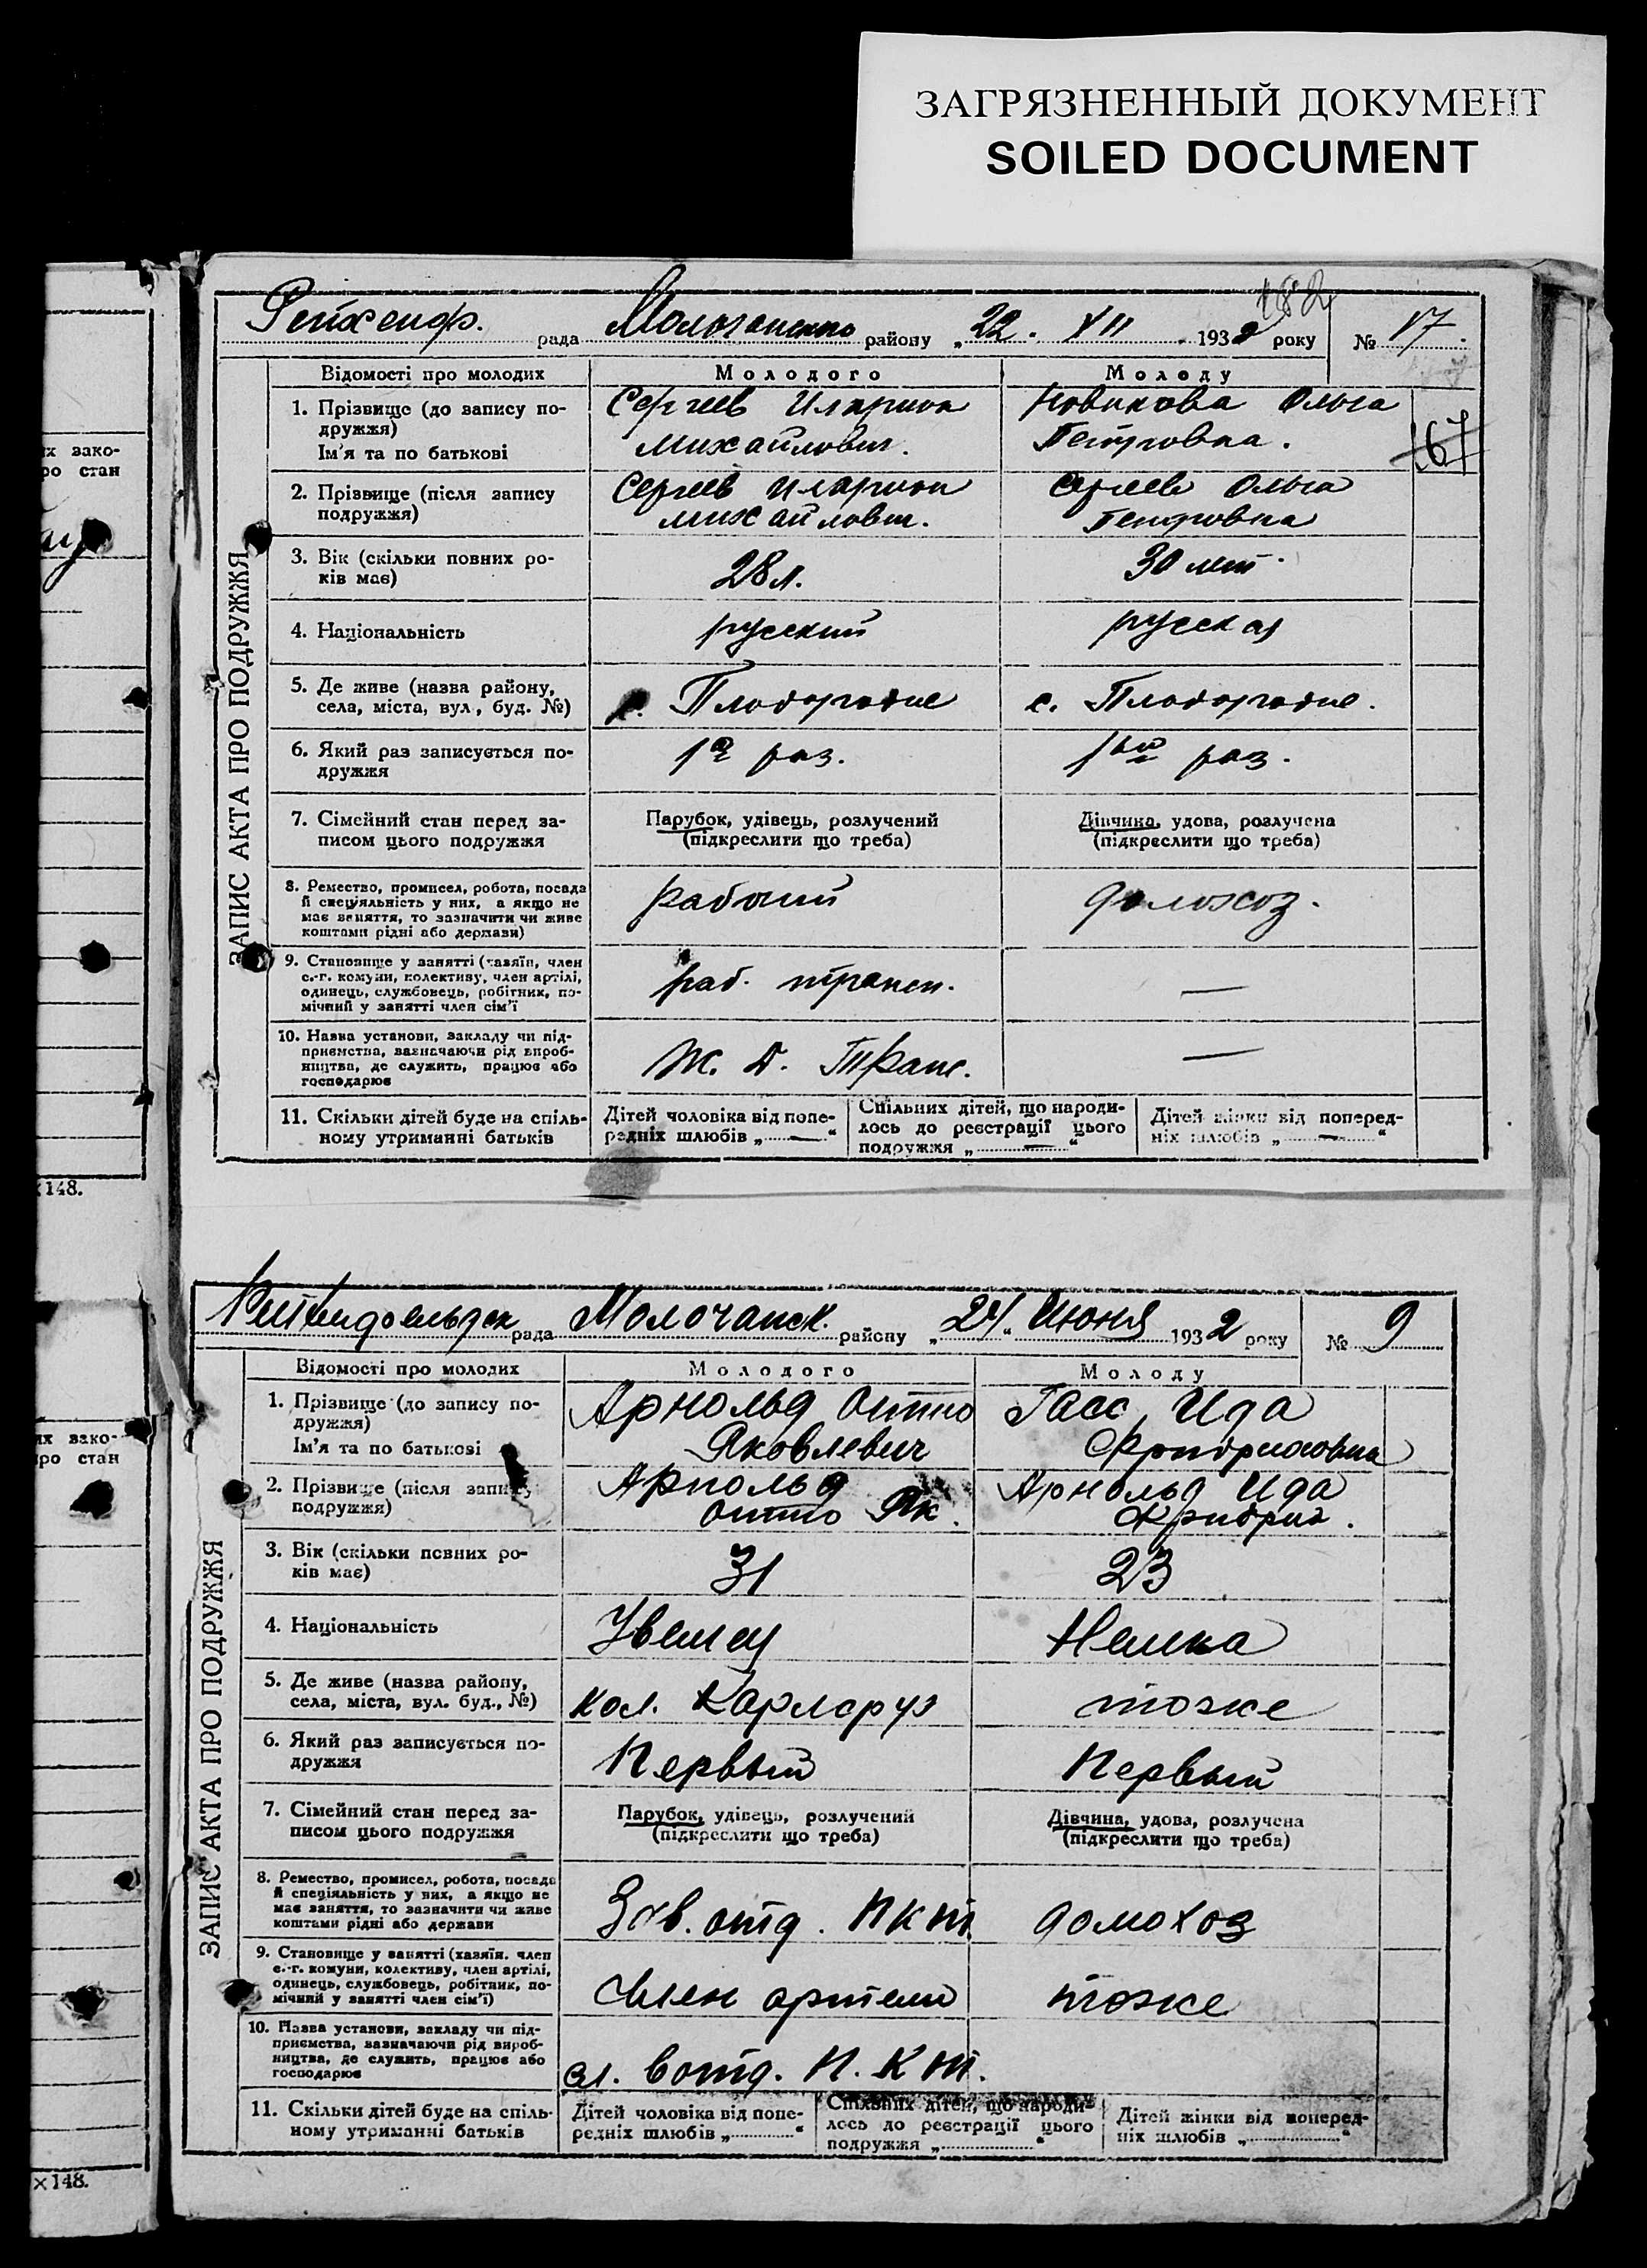 ЗАГРЯЗНЕННЫЙ ДОКУМЕНТ
SOILED DOCUMENT
х зако-
ро стан
×148.
их вако-
про стан
×148.
182
Рейхенф. рада района „22. XII 193 року № 17.
Відомості про молодих Молодого Молоду
ЗАПИС АКТА ПРО ПОДРУЖЖЯ
1. Прізвище (до запису по-
дружжя)
Ім'я та по батькові
Сергеев Иларион
Михайлович.
Новикова Ольга
Петровна.
167
2. Прізвище (після запису
подружжя)
Сергеев Иларион
Михайлович.
Сергеев Ольга
Петровна
3. Вік (скільки повних ро-
ків має)
28 л.
30 лет.
4. Національність
русский
русская
5. Де живе (назва району,
села, міста, вул., буд. №)
с. Плодородие
с. Плодородие.
6. Який раз записується по-
дружжя
1й раз.
1ый раз.
7. Сімейний стан перед за-
писом цього подружжя
Парубок, удівець, розлучений
(підкреслити що треба)
Дівчина, удова, розлучена
(підкреслити що треба)
8. Ремество, промисел, робота, посада
й спеціяльність у них, а якщо не
має заняття, то зазначити чи живе
коштами рідні або держави)
рабочий
домохоз.
9. Становище у занятті (хазяїн, член
с.-г. комуни, колективу, член артілі,
одинець, службовець, робітник, по-
мічний у занятті член сім'ї
раб. трансп.
—
10. Назва установи, закладу чи під-
приємства, зазначаючи рід вироб-
ництва, де служить, працює або
господарює
Ж. Д. Транс.
—
11. Скільки дітей буде на спіль-
ному утриманні батьків
Дітей чоловіка від попе-
редніх шлюбів „ — “
Спільних дітей, що народи-
лось до реєстрації цього
подружжя „ — “
Дітей жінки від поперед-
ніх шлюбів „ — “
рада Молочанск. району „24“ Июня 1932 року № 9
Відомості про молодих Молодого Молоду
ЗАПИС АКТА ПРО ПОДРУЖЖЯ
1. Прізвище (до запису по-
дружжя)
Ім'я та по батькові
Арнольд Отто
Яковлевич
Гасс, Ида
Фридриховна
2. Прізвище (після запису
подружжя)
Арнольд
Отто Як.
Арнольд Ида
Фридрих.
3. Вік (скільки повних ро-
ків має)
31
23
4. Національність
Немка
5. Де живе (назва району,
села, міста, вул. буд., №)
кол. Карлсруэ
тоже
6. Який раз записується по-
дружжя
Первый
Первый
7. Сімейний стан перед за-
писом цього подружжя
Парубок, удівець, розлучений
(підкреслити що треба)
Дівчина, удова, розлучена
(підкреслити що треба)
8. Ремество, промисел, робота, посада
й спеціяльність у них, а якщо не
має заняття, то зазначити чи живе
коштами рідні або держави
Зав. отд. ПКТ
домохоз
9. Становище у занятті (хазяїн, член
с.-г. комуни, колективу, член артілі,
одинець, службовець, робітник, по-
мічний у занятті член сім'ї)
Член артели
тоже
10. Назва установи, закладу чи під-
приємства, зазначаючи рід вироб-
ництва, де служить, працює або
господарює
сл. в отд. П.К.Т.
11. Скільки дітей буде на спіль-
ному утриманні батьків
Дітей чоловіка від попе-
редніх шлюбів „ “
Спільних дітей, що народи-
лось до реєстрації цього
подружжя „ “
Дітей жінки від поперед-
ніх шлюбів „ “